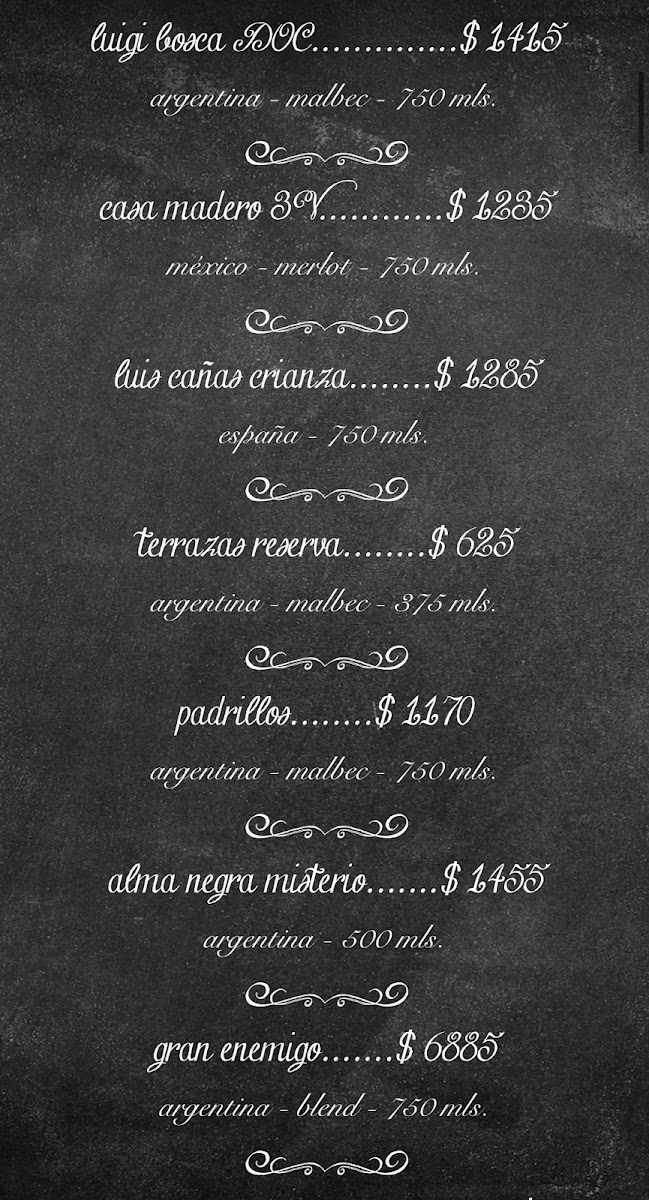 luigi bosca DOC..............$ 1415
argentina - malbec - 750 mls.
casa madero 3V............$ 1235
méxico - merlot - 750 mls.
luis cañas crianza........$ 1285
españa - 750 mls.
terrazas reserva........$ 625
argentina - malbec - 375 mls.
padrillos........$ 1170
argentina - malbec - 750 mls.
alma negra misterio.......$ 1455
argentina - 500 mls.
gran enemigo.......$ 6885
argentina - blend - 750 mls.